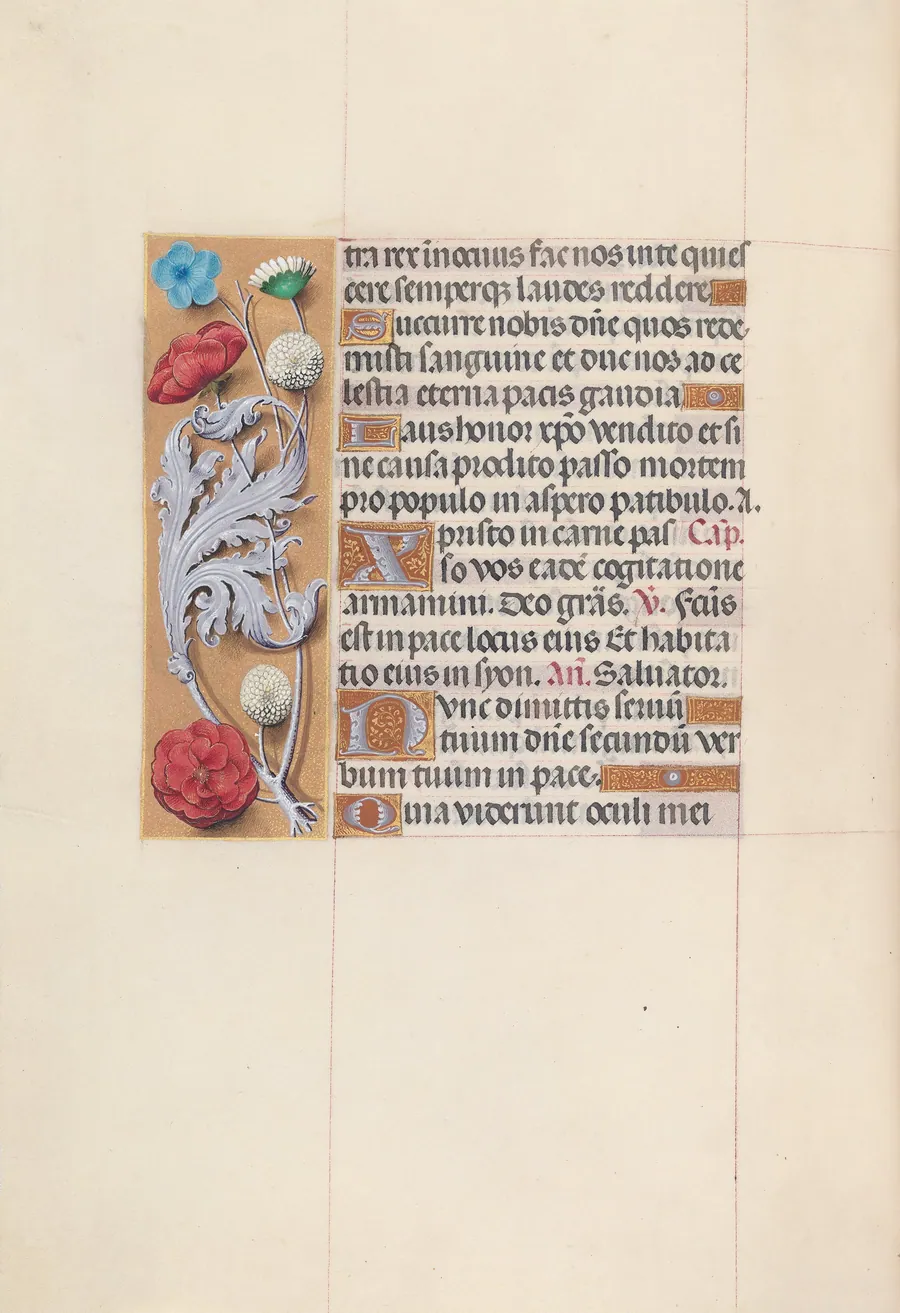 tra rex īnocuus fac nos in te quies
cere semperqꝫ laudes reddere
Succurre nobis dn̄e quos rede
misti sanguine et duc nos ad ce
lestia eterna pacis gaudia
Laus honor xp̄o vendito et si
ne causa prodito passo mortem
pro populo in aspero patibulo. A.
Xpristo in carne pas Cap̄.
so vos eadē cogitatione
armamini. Deo grās. V̄. Fcūs
est in pace locus eius Et habita
tio eius in syon. Añ. Saluator.
Nunc dimittis seruū
tuum dn̄e secundū ver
bum tuum in pace.
Quia viderunt oculi mei